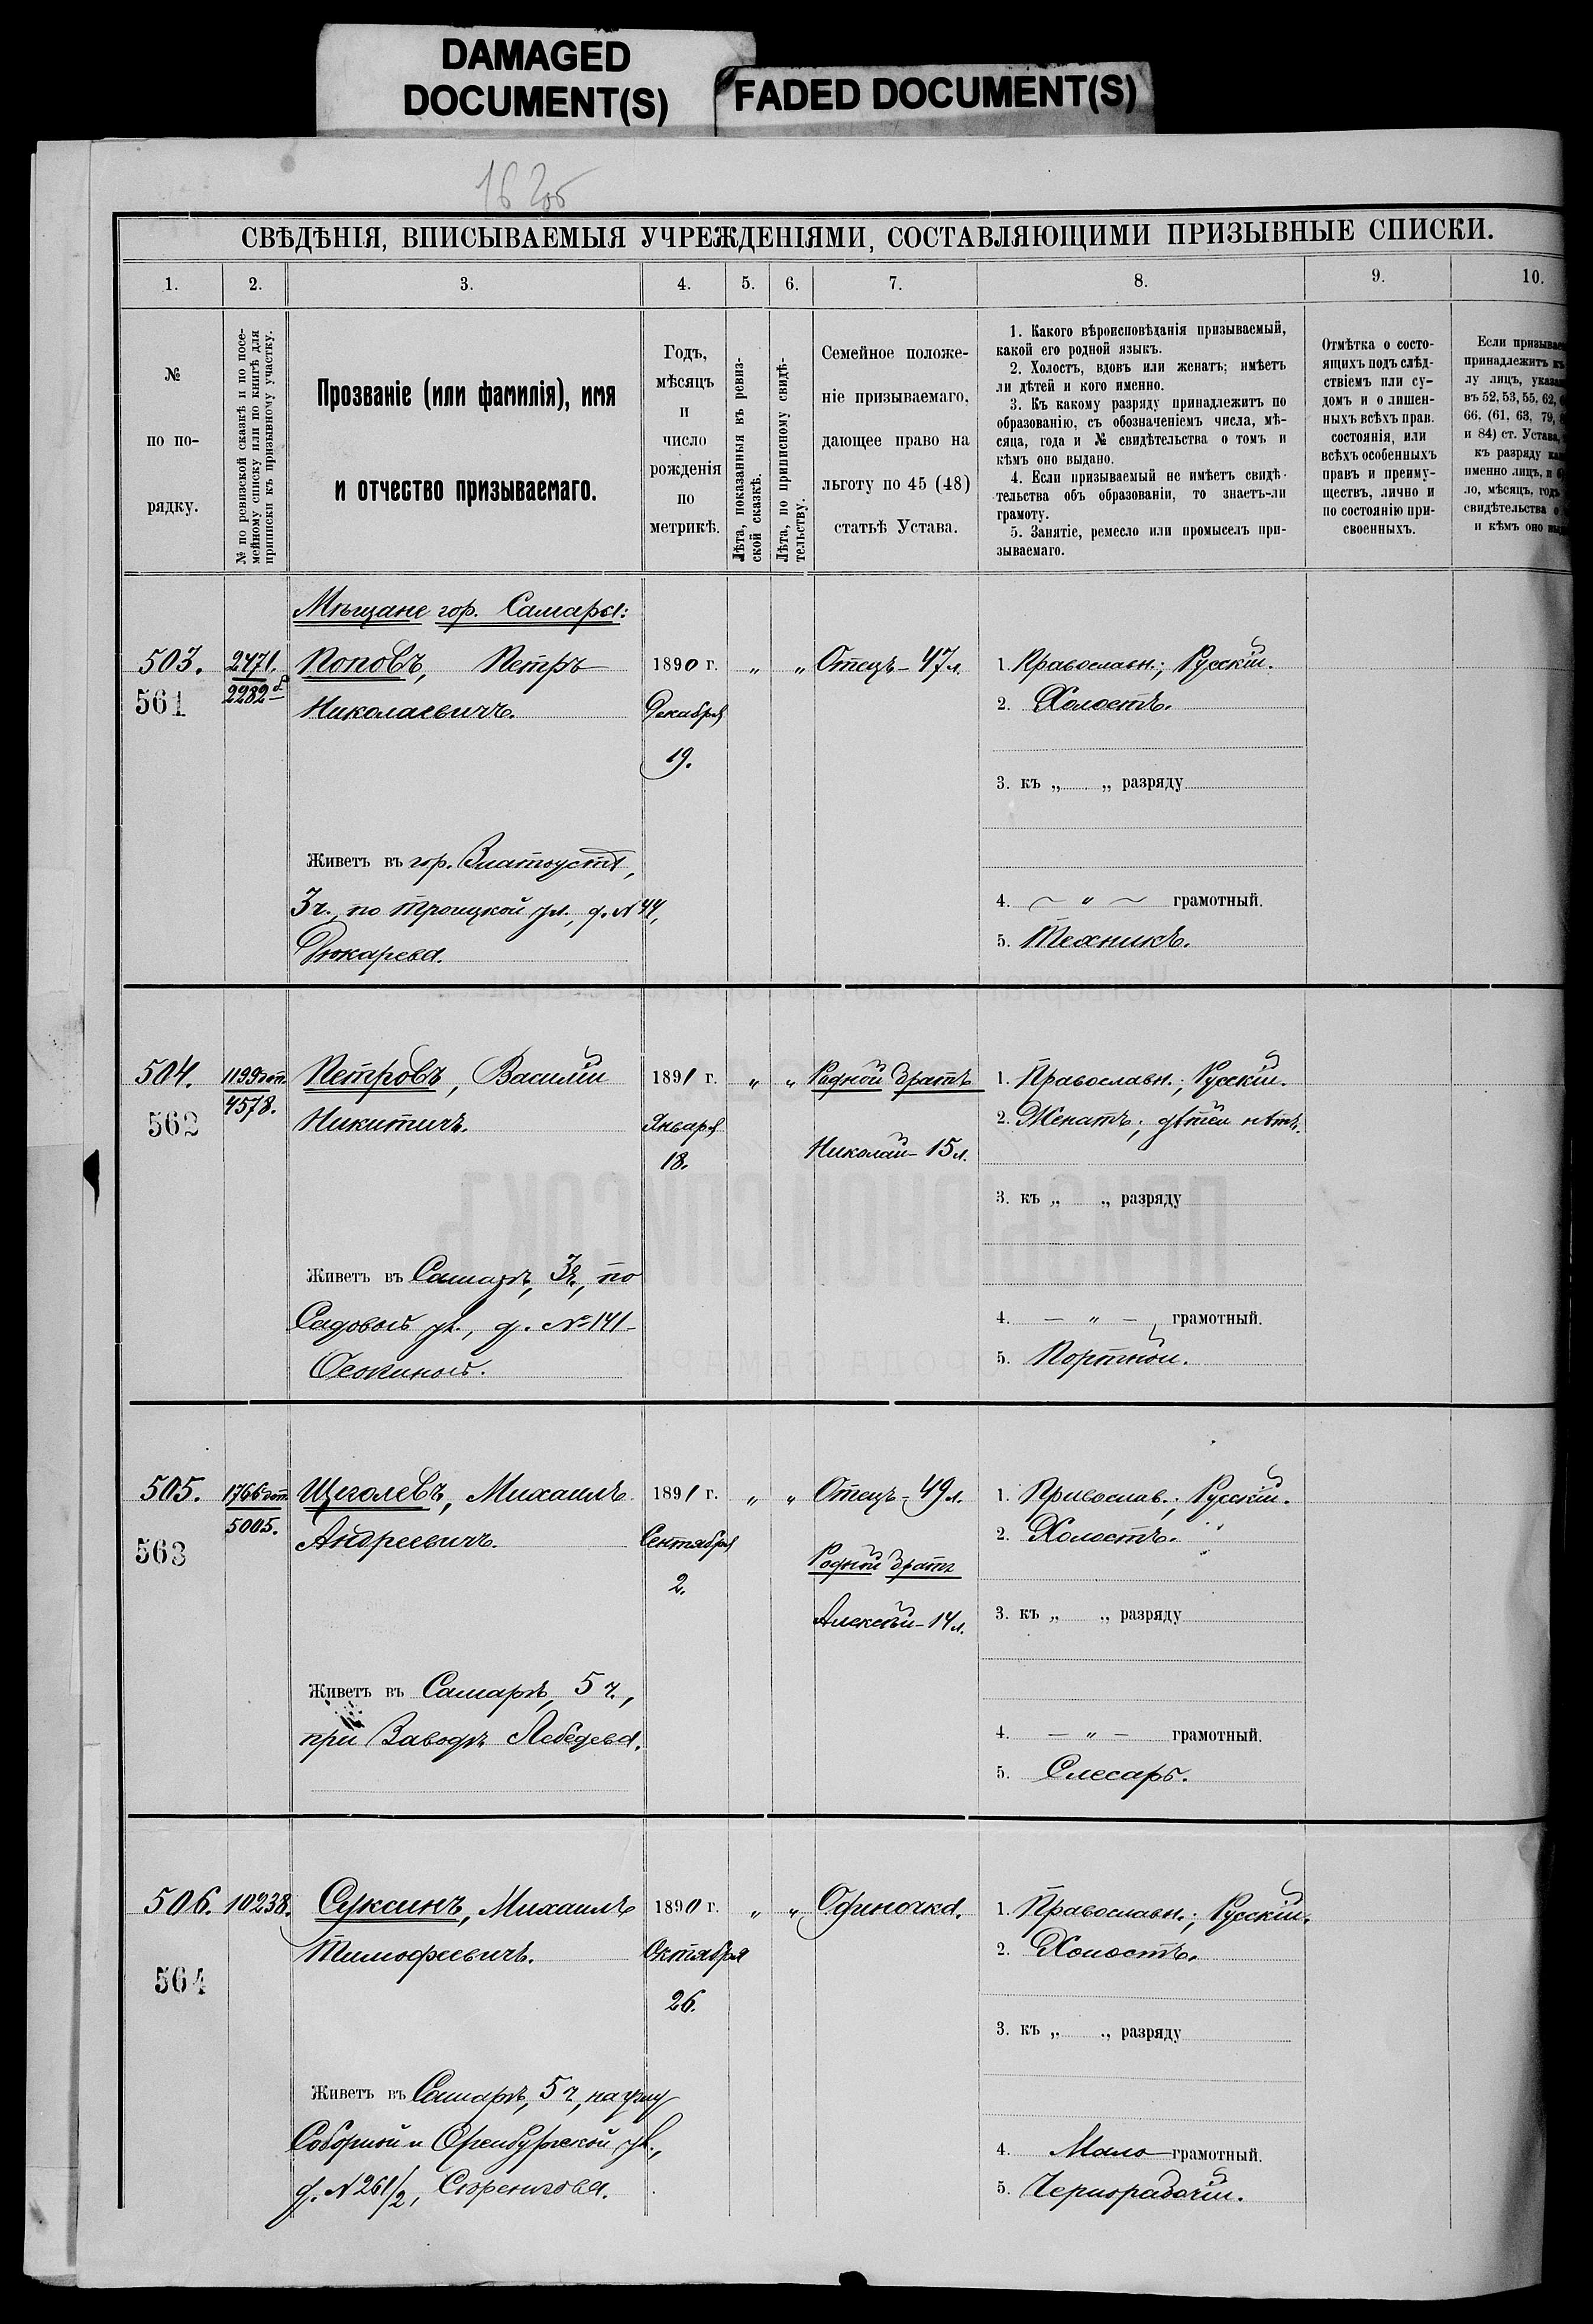 DAMAGED
DOCUMENT(S)
FADED DOCUMENT(S)
16 об
СВѢДѢНІЯ, ВПИСЫВАЕМЫЯ УЧРЕЖДЕНІЯМИ, СОСТАВЛЯЮЩИМИ ПРИЗЫВНЫЕ СПИСКИ.
1. 2. 3. 4. 5. 6. 7. 8. 9. 10.
№
по по-
рядку.
№ по ревизской сказкѣ и по посе-
мейному списку или по книгѣ для
приписки къ призывному участку.
Прозваніе (или фамилія), имя
и отчество призываемаго.
Годъ,
мѣсяцъ
и
число
рожденія
по
метрикѣ.
Лѣта, показанныя въ ревиз-
ской сказкѣ.
Лѣта, по приписному свидѣ-
тельству.
Семейное положе-
ніе призываемаго,
дающее право на
льготу по 45 (48)
статьѣ Устава.
1. Какого вѣроисповѣданія призываемый,
какой его родной языкъ.
2. Холостъ, вдовъ или женатъ; имѣетъ
ли дѣтей и кого именно.
3. Къ какому разряду принадлежитъ по
образованію, съ обозначеніемъ числа, мѣ-
сяца, года и № свидѣтельства о томъ и
кѣмъ оно выдано.
4. Если призываемый не имѣетъ свидѣ-
тельства объ образованіи, то знаетъ-ли
грамоту.
5. Занятіе, ремесло или промыселъ при-
зываемаго.
Отмѣтка о состо-
ящихъ подъ слѣд-
ствіемъ или су-
домъ и о лишен-
ныхъ всѣхъ прав.
состоянія, или
всѣхъ особенныхъ
правъ и преиму-
ществъ, лично и
по состоянію при-
своенныхъ.
Если призывае
принадлежитъ къ
лу лицъ, указа
въ 52, 53, 55, 62,
66. (61. 63, 79,
и 84) ст. Устава,
къ разряду
именно лицъ, и
ло, мѣсяцъ, годъ
свидѣтельства о
и кѣмъ оно
Мѣщане гор. Самары:
503. 2471. Поповъ, Петръ 1890 г. „ „ Отецъ – 47 л. 1. Православн.; Русскій.
561 2282 Николаевичъ. Декабря 2. Холостъ.
19.
3. къ „ „ разряду
Живетъ въ гор. Златоустѣ,
3 ч., по Троицкой ул., д. № 44, 4. – „ – грамотный.
Дюкарева. 5. Техникъ.
504. 1199 Петровъ, Василій 1891 г. „ „ Родной братъ 1. Православн.; Русскій.
562 4578. Никитичъ. Января Николай – 15 л. 2. Женатъ; дѣтей нѣтъ.
18.
3. къ „ „ разряду
Живетъ въ Самарѣ, 3 ч., по
Садовой ул., д. № 141 – 4. – „ – грамотный.
5. Портной.
505. 1766 Щеголевъ, Михаилъ 1891 г. „ „ Отецъ – 49 л. 1. Православ.; Русскій.
563 5005. Андреевичъ. Сентября Родной братъ 2. Холостъ.
2. Алексѣй – 14 л.
3. къ „ „ разряду
Живетъ въ Самарѣ, 5 ч.,
при Заводѣ Лебедева. 4. – „ – грамотный.
5. Слесарь.
506. 10238. Суксинъ, Михаилъ 1890 г. „ „ Одиночка. 1. Православн.; Русскій.
564 Тимофеевичъ. Октября 2. Холостъ.
26.
3. къ „ „ разряду
Живетъ въ Самарѣ, 5 ч., на углу
Соборной и Оренбургской ул., 4. Мало грамотный.
д. № 261/2, 5. Чернорабочій.